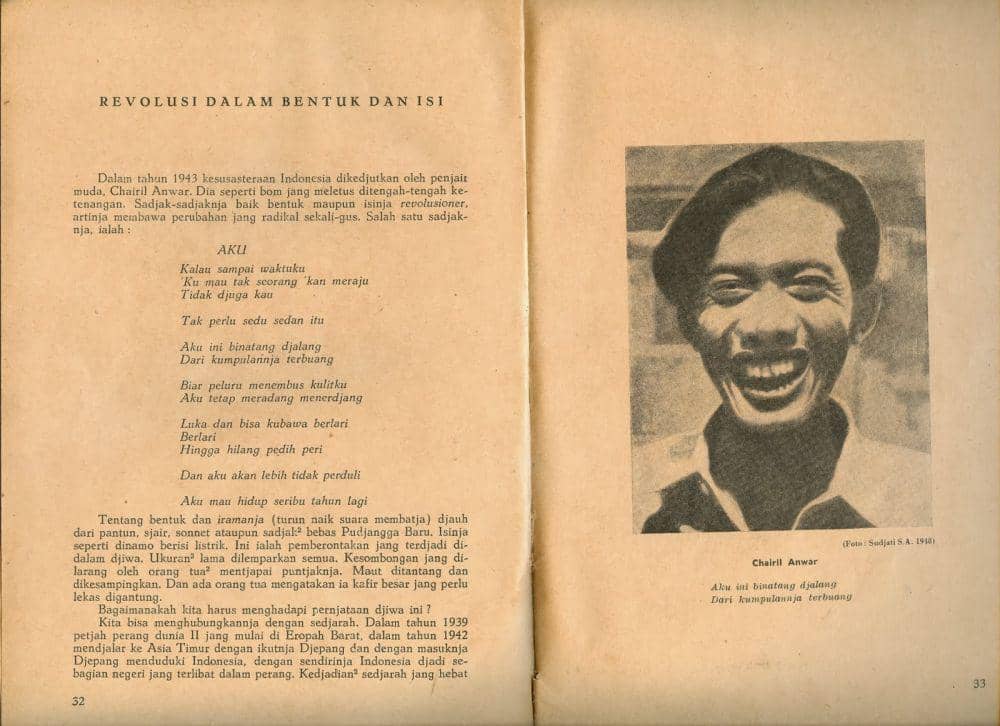 REVOLUSI DALAM BENTUK DAN ISI
Dalam tahun 1943 kesusasteraan Indonesia dikedjutkan oleh penjair
muda, Chairil Anwar. Dia seperti bom jang meletus ditengah-tengah ke-
tenangan. Sadjak-sadjaknja baik bentuk maupun isinja revolusioner,
artinja membawa perubahan jang radikal sekali-gus. Salah satu sadjak-
nja, ialah :
AKU
Kalau sampai waktuku
'Ku mau tak seorang 'kan meraju
Tidak djuga kau
Tak perlu sedu sedan itu
Aku ini binatang djalang
Dari kumpulannja terbuang
Biar peluru menembus kulitku
Aku tetap meradang menerdjang
Luka dan bisa kubawa berlari
Berlari
Hingga hilang pedih peri
Dan aku akan lebih tidak perduli
Aku mau hidup seribu tahun lagi
Tentang bentuk dan iramanja (turun naik suara membatja) djauh
dari pantun, sjair, sonnet ataupun sadjak² bebas Pudjangga Baru. Isinja
seperti dinamo berisi listrik. Ini ialah pemberontakan jang terdjadi di-
dalam djiwa. Ukuran² lama dilemparkan semua. Kesombongan jang di-
larang oleh orang tua² mentjapai puntjaknja. Maut ditantang dan
dikesampingkan. Dan ada orang tua mengatakan ia kafir besar jang perlu
lekas digantung.
Bagaimanakah kita harus menghadapi pernjataan djiwa ini ?
Kita bisa menghubungkannja dengan sedjarah. Dalam tahun 1939
petjah perang dunia II jang mulai di Eropah Barat, dalam tahun 1942
mendjalar ke Asia Timur dengan ikutnja Djepang dan dengan masuknja
Djepang menduduki Indonesia, dengan sendirinja Indonesia djadi se-
bagian negeri jang terlibat dalam perang. Kedjadian² sedjarah jang hebat
32
(Foto : Sudjati S.A. 1948)
Chairil Anwar
Aku ini binatang djalang
Dari kumpulannja terbuang
33